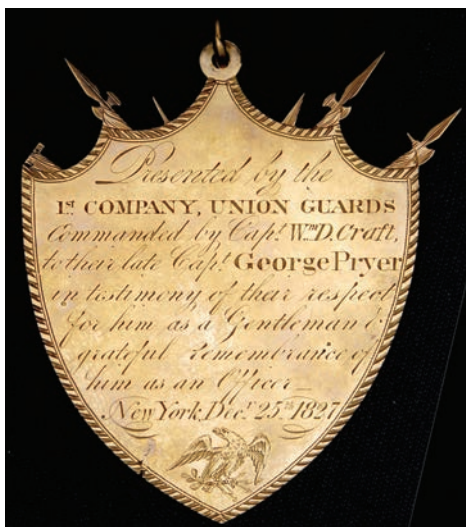 Presented by the
1st COMPANY, UNION GUARDS
Commanded by Capt. Wm. D. Craft,
to their late Capt. George Pryer
in testimony of their respect
for him as a Gentleman &
grateful remembrance of
him as an Officer_
New York, Decr. 25th 1827